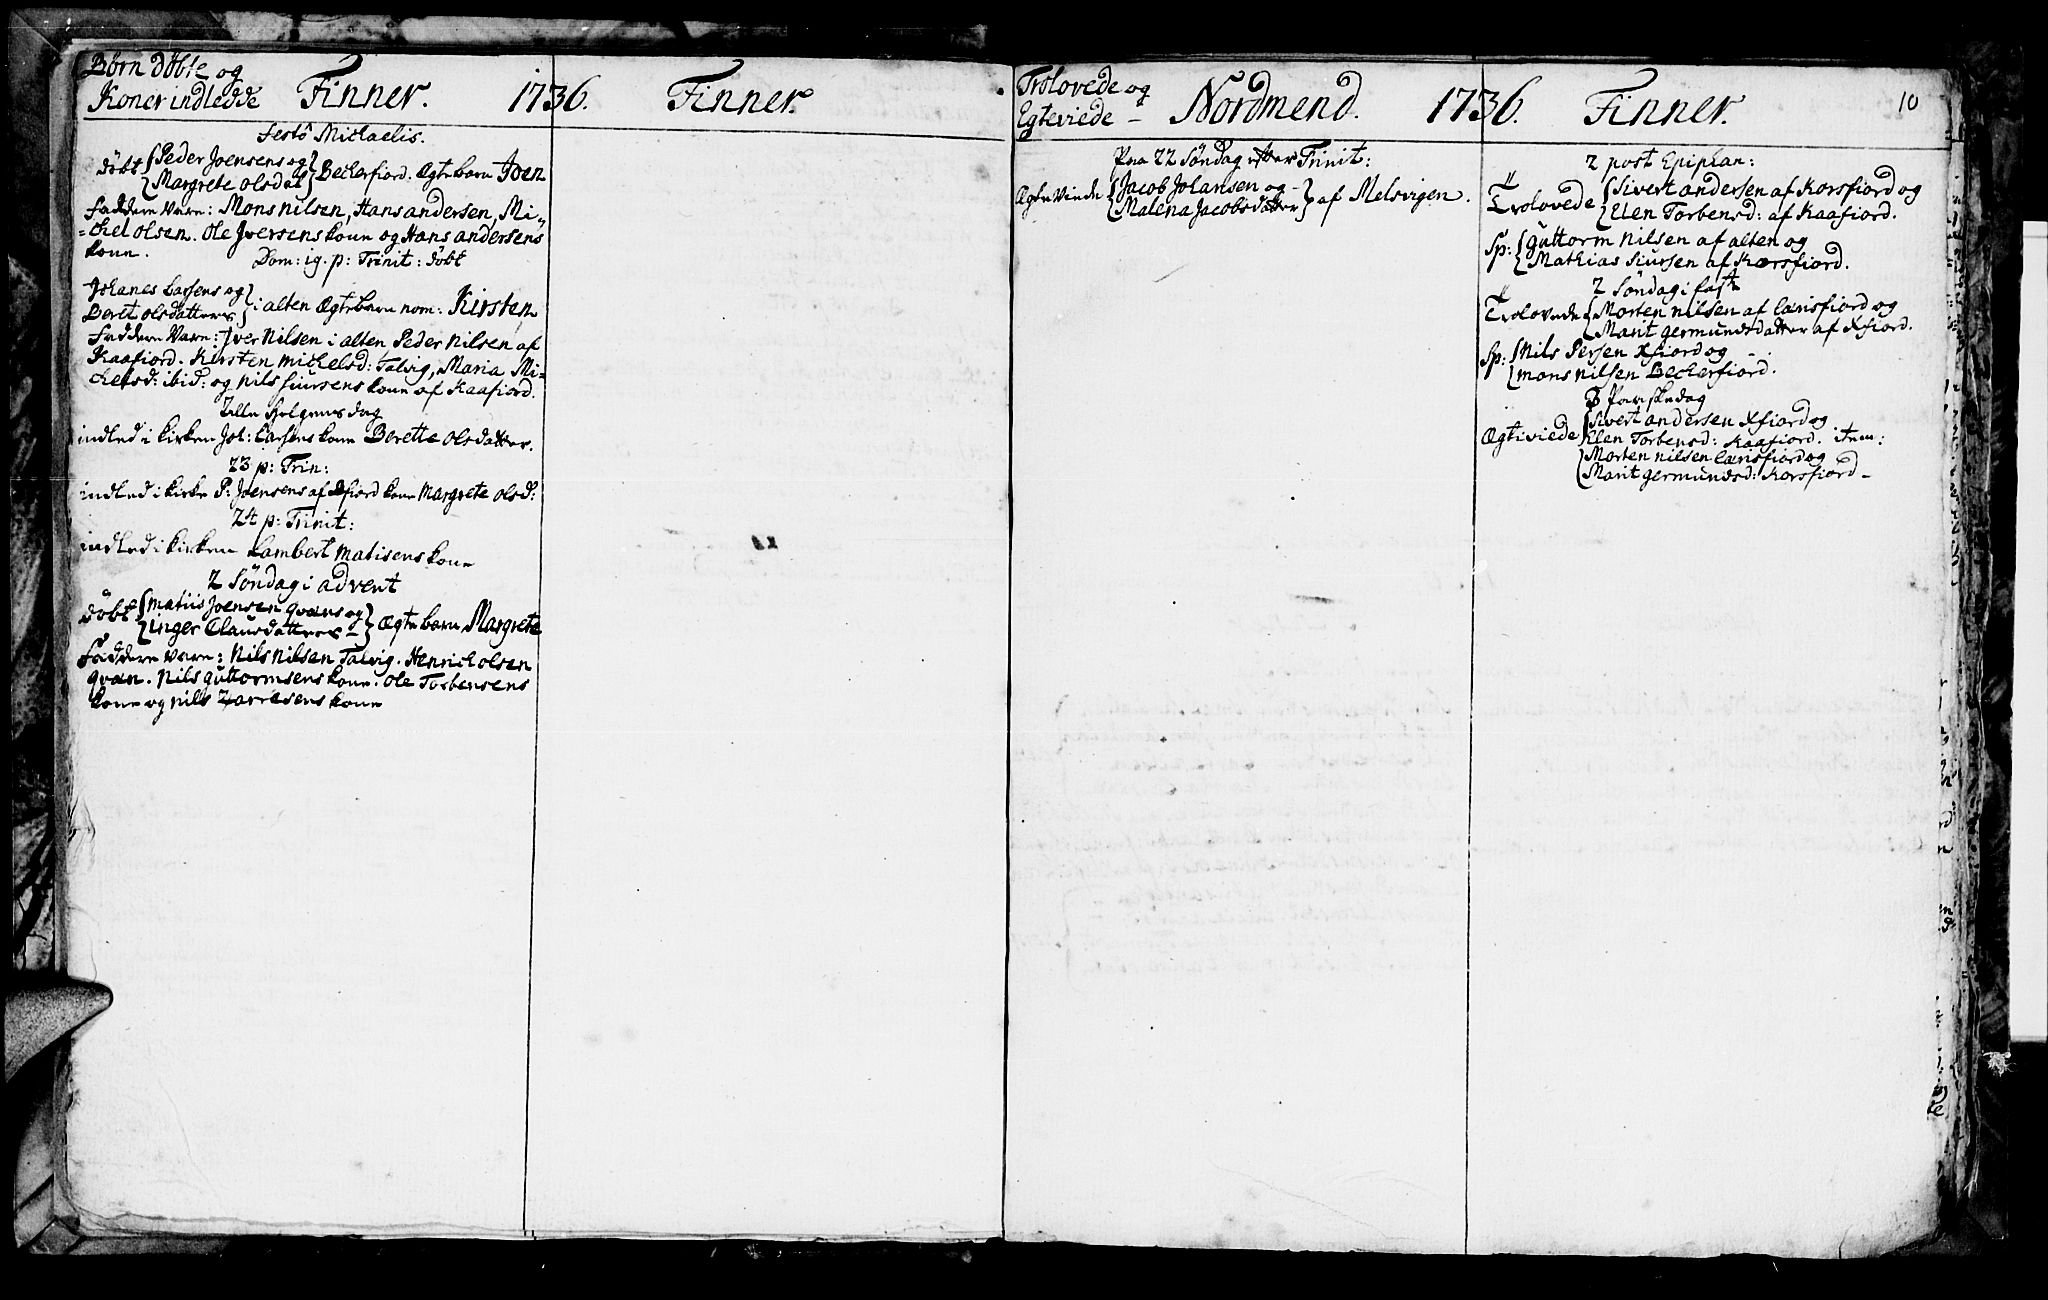 Børn døbte og
Koner indledde Finner. 1736. Finner.
Festo Michaelis.
døbt Peder Joensens og
Margrete olsdat Beckerfiord. Ægte barn Joen
Faddere Vare: Mons nilsen, Hans andersen, Mi-
chel olsen. Ole Jversens kone og Hans andersens
kone.
Dom: 19. p: Trinit: døbt
Johanes Larsens og
Beret olsdatters i alten Ægte barn nom: Kirsten
Faddere Vare: Jver Nilsen i alten Peder Nilsen af
Kaafiord. Kirsten Michelsd: Talvig, Maria Mi-
chelsd: ibid: og nils siursens kone af Kaafiord.
Alle Helgenes dag
indled i kirken Joh: Larsens kone Berette olsdatter.
23 p: Trin:
indled i kirke P: Joensens af fiord kone Margrete olsd:
24 p: Trinit:
indled i kirken Lambert Matisens kone
2 Søndag i advent
døbt Matiis Joensen qvæns og
inger Clausdatters Ægte barn Margrete
Faddere vare: Nils Nilsen Talvig. Henrich olsen
qvæn. Nils guttormsens kone. Ole Torbensens
kone og nils kone
Trolovede og
Egteviede Nordmend. 1736. Finner. 10
Paa 22 Søndag efter Trinit:
Ægte Viede Jacob Johansen og
Malena Jacobsdatter af Melsvigen.
2 post Epiphan:
Trolovede Sivert andersen af Korsfiord og
Elen Torbensd: af Kaafiord.
Sp: guttorm Nilsen af alten og
Mathias siursen af Korsfiord.
2 Søndag i fast
Trolovede Morten Nilsen af Lærisfiord og
Marit germundsdatter af Xfiord.
Sp: Nils Persen Xfiord og
mons nilsen Beckerfiord.
3 Paaskedag
Ægteviede Sivert andersen Xfiord og
Elen Torbensd: Kaafiord. item:
Morten Nilsen Lærisfiord og
Marit germundsd: Korsfiord